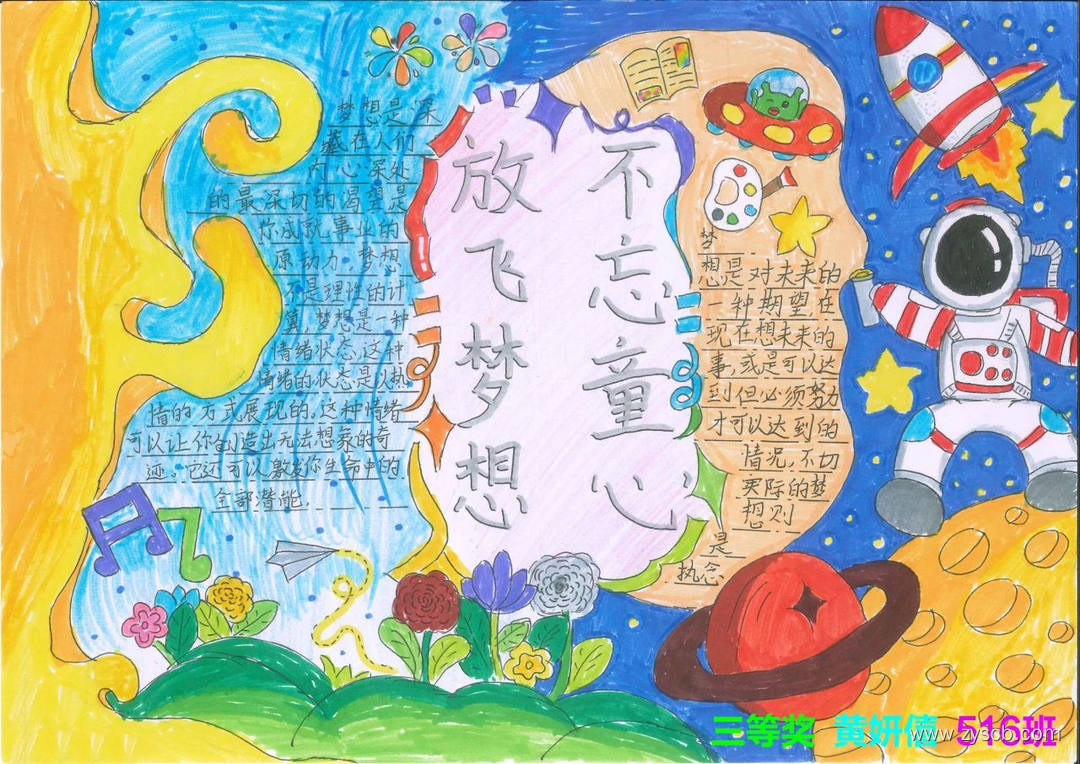 不忘童心
放飞梦想
梦想是深
藏在人们
内心深处
的最深切的渴望是
你成就事业的
原动力.梦想
不是理性的计
算,梦想是一种
情绪状态,这种
情绪的状态是以热
情的方式展现的,这种情绪
可以让你创造出无法想象的奇
迹,它还可以激发你生命中的
全部潜能.
梦
想是对未来的
一种期望,在
现在想未来的
事,或是可以达
到但必须努力
才可以达到的
情况,不切
实际的梦
想则
是
执念
三等奖 黄妍僖 516班
www.zyscb.com